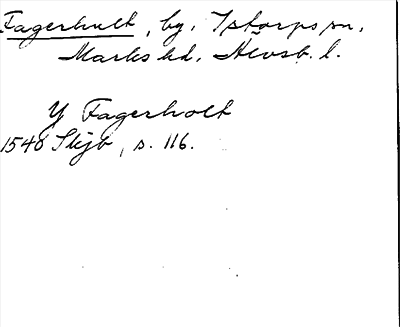 Fagerhult, by, Istorps sn,
Marks hd, Älvsb. l.
Y Fagerholt
1540 Skjb, s. 116.